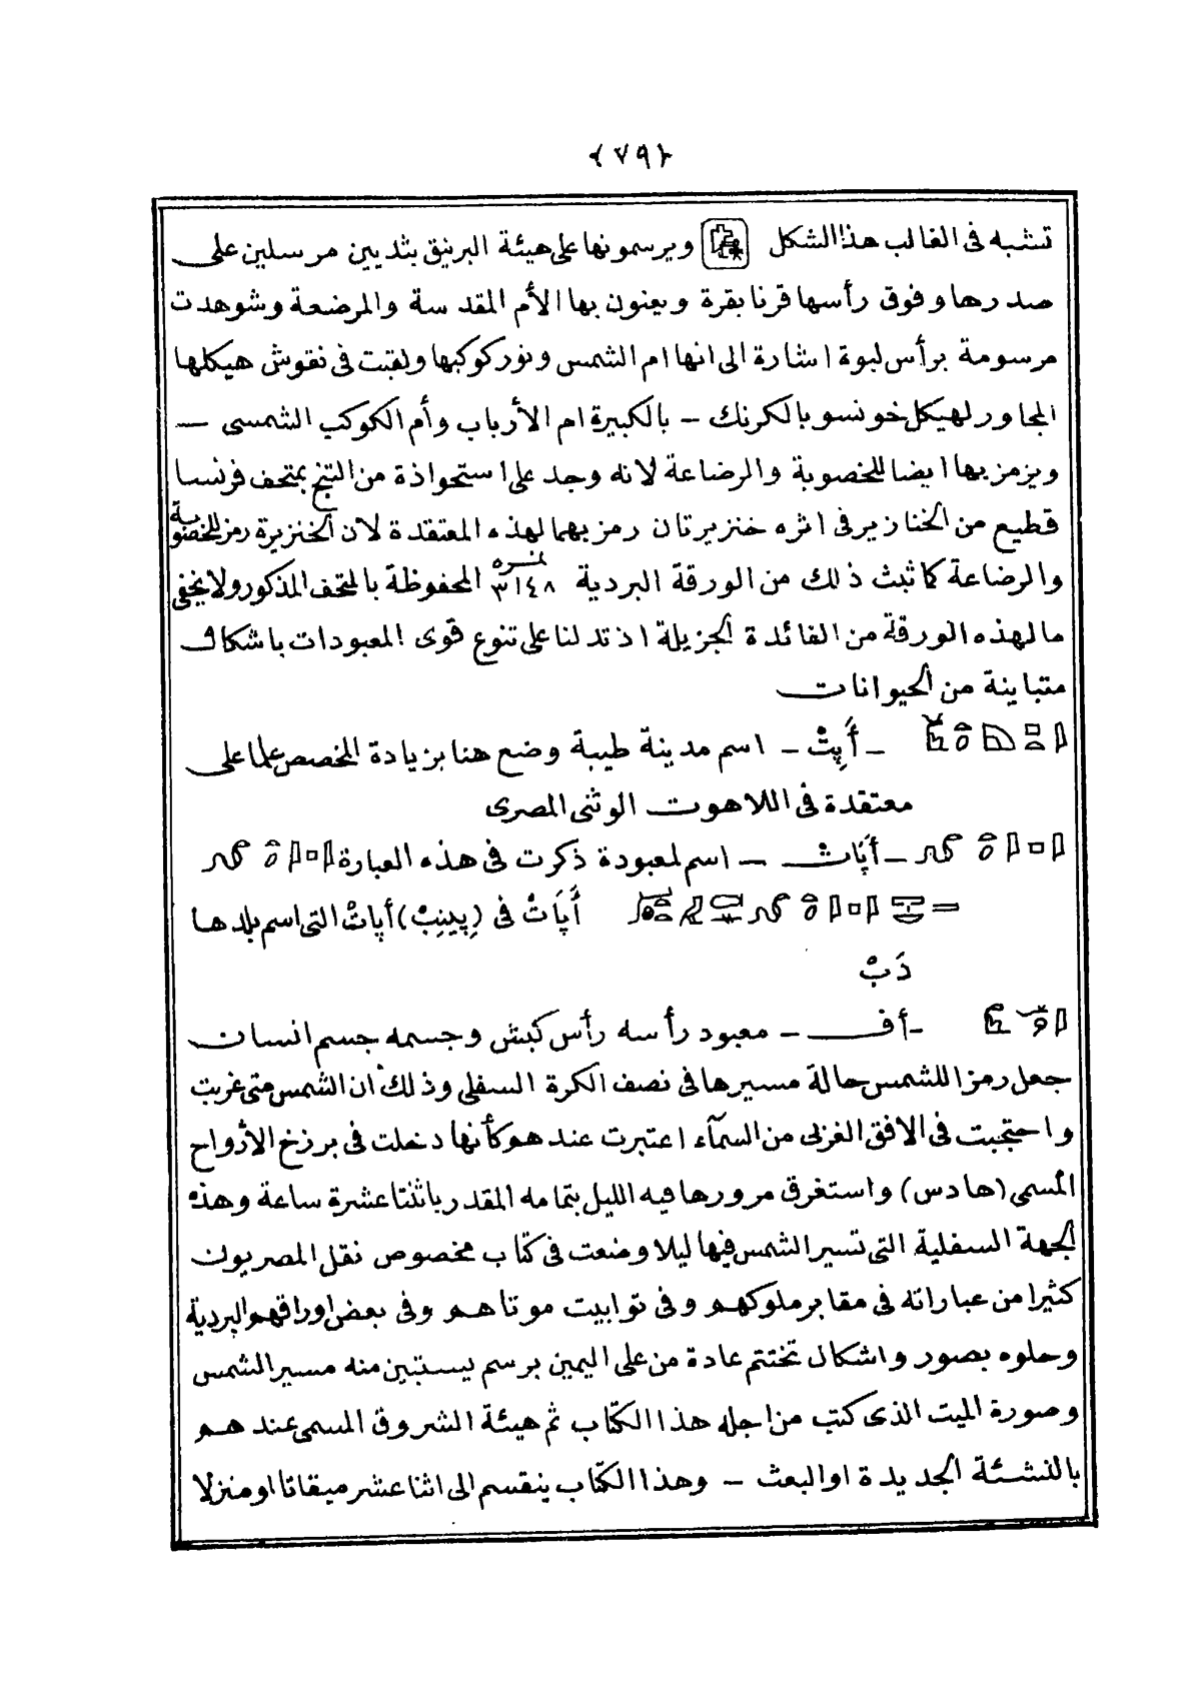 ﴿٧٩﴾
تشبه فى الغالب هذا الشكل ويرسمونها على هيئة البرنيق بثديين مرسلين على
صدرها وفوق رأسها قرنا بقرة ويعنون بها الأم المقدسة والمرضعة وشوهدت
مرسومة برأس لبوة اشارة الى انها ام الشمس ونور كوكبها ولقبت فى نقوش هيكلها
المجاور لهيكل خونسو بالكرنك – بالكبيرة ام الأرباب وأم الكوكب الشمسى –
ويرمز بها ايضا للخصوبة والرضاعة لانه وجد على استحواذة من التبخ بمتحف فرنسا
قطيع من الخنازير فى اثره خنزيرتان رمز بهما لهذه المعتقدة لان الخنزيرة رمز للخصوبة
والرضاعة كما ثبت ذلك من الورقة البردية نمره ٣١٤٨ المحفوظة بالمتحف المذكور ولا يخفى
ما لهذه الورقة من الفائدة الجزيلة اذ تدلنا على تنوع قوى المعبودات باشكال
متباينة من الحيوانات
– أَپِتْ – اسم مدينة طيبة وضع هنا بزيادة المخصص علما على
معتقدة فى اللاهوت الوثنى المصرى
– أپَات – اسم لمعبودة ذكرت فى هذه العبارة
أَپَاتْ فى (پِينِبْ) أپاتْ التى اسم بلدها
دَبْ
– أف – معبود رأسه رأس كبش وجسمه جسم انسان
جعل رمزا للشمس حالة مسيرها فى نصف الكرة السفلى وذلك ان الشمس متى غربت
واحتجبت فى الافق الغربى من السمآء اعتبرت عندهم كأنها دخلت فى برزخ الأرواح
المُسمى (هادس) واستغرق مرورها فيه الليل بتمامه المقدر باثنتا عشرة ساعة وهذه
الجهة السفلية التى تسير الشمس فيها ليلا وضعت فى كتاب مخصوص نقل المصريون
كثيرا من عباراته فى مقابر ملوكهم وفى توابيت موتاهم وفى بعض اوراقهم البردية
وحلوه بصور واشكال تختتم عادة من على اليمين برسم يستبين منه مسير الشمس
وصورة الميت الذى كتب من اجله هذا الكتاب ثم هيئة الشروق المسمى عندهم
بالنشئة الجديدة او البعث – وهذا الكتاب ينقسم الى اثنا عشر ميقاتا او منزلا